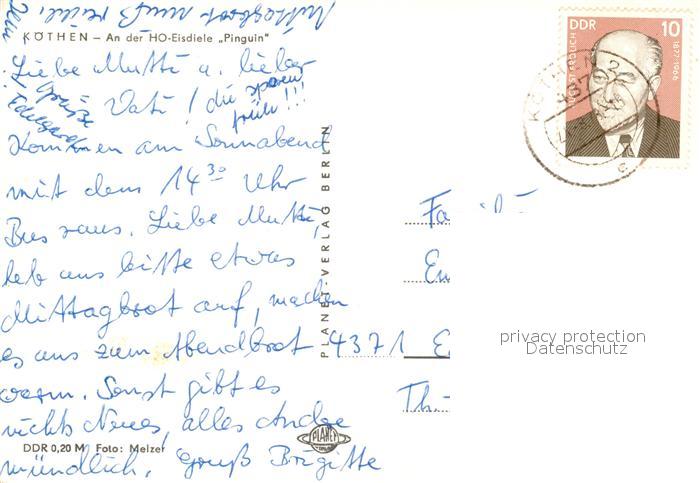 Mittagbrot muß
KÖTHEN – An der HO-Eisdiele „Pinguin"
DDR 10
1877-1966
KÖTHEN 2
437
c
Liebe Mutti u. lieber
Vati! die
früh!!!
Grüße
Kommen am Sonnabend
mit dem 14 30 Uhr
Bus raus. Liebe Mutti,
heb uns bitte etwas
Mittagbrot auf, machen
es uns zum Abendbrot
warm. Sonst gibt es
nichts Neues, alles Andre
mündlich. Gruß Brigitte
DDR 0,20 M Foto: Melzer
PLANET-VERLAG BERLIN
PLANET
Fa
4371 E
Th
privacy protection
Datenschutz